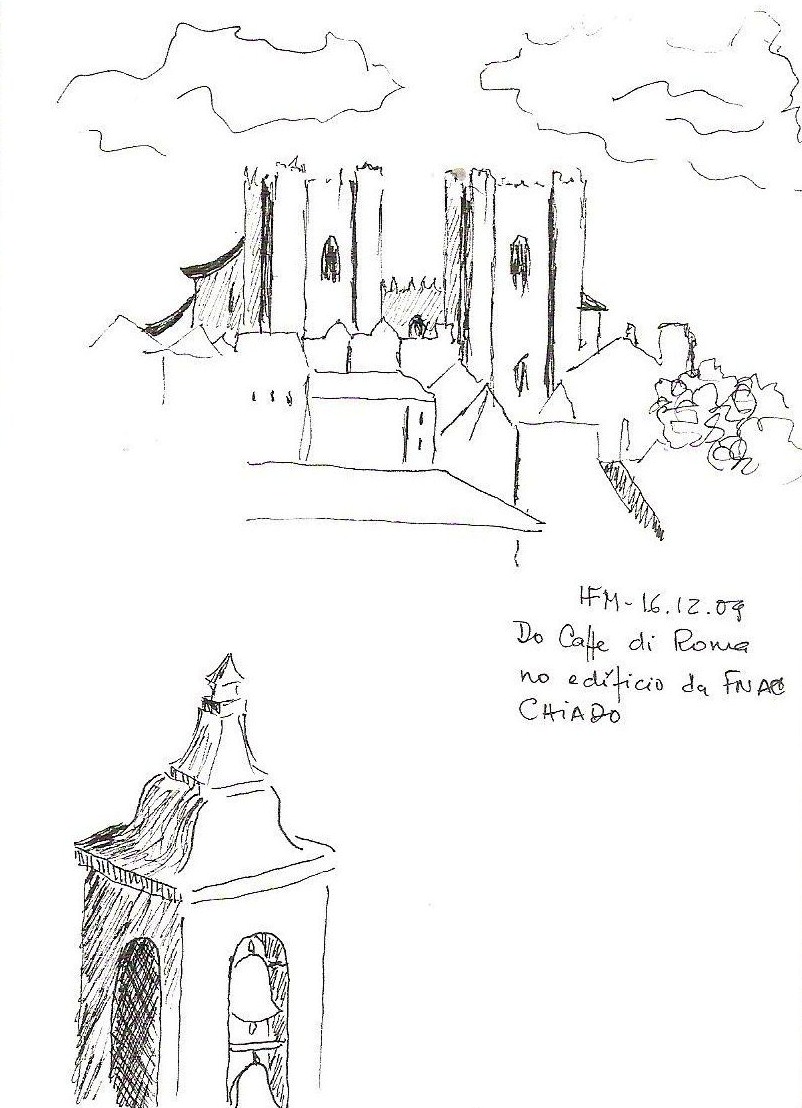 HFM - 16.12.09
Do Caffe di Roma
no edifício da FNAC
CHIADO